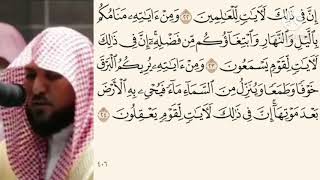 إِنَّ فِي ذَٰلِكَ لَآيَاتٍ لِّلْعَالِمِينَ ٢٢ وَمِنْ ءَايَاتِهِۦ مَنَامُكُم
بِالَّيْلِ وَالنَّهَارِ وَابْتِغَاؤُكُم مِّن فَضْلِهِۦٓ إِنَّ فِي ذَٰلِكَ
لَآيَاتٍ لِّقَوْمٍ يَسْمَعُونَ ٢٣ وَمِنْ ءَايَاتِهِۦ يُرِيكُمُ الْبَرْقَ
خَوْفًا وَطَمَعًا وَيُنَزِّلُ مِنَ السَّمَآءِ مَآءً فَيُحْىِۦ بِهِ الْأَرْضَ
بَعْدَ مَوْتِهَآ إِنَّ فِي ذَٰلِكَ لَآيَاتٍ لِّقَوْمٍ يَعْقِلُونَ ٢٤
٤٠٦